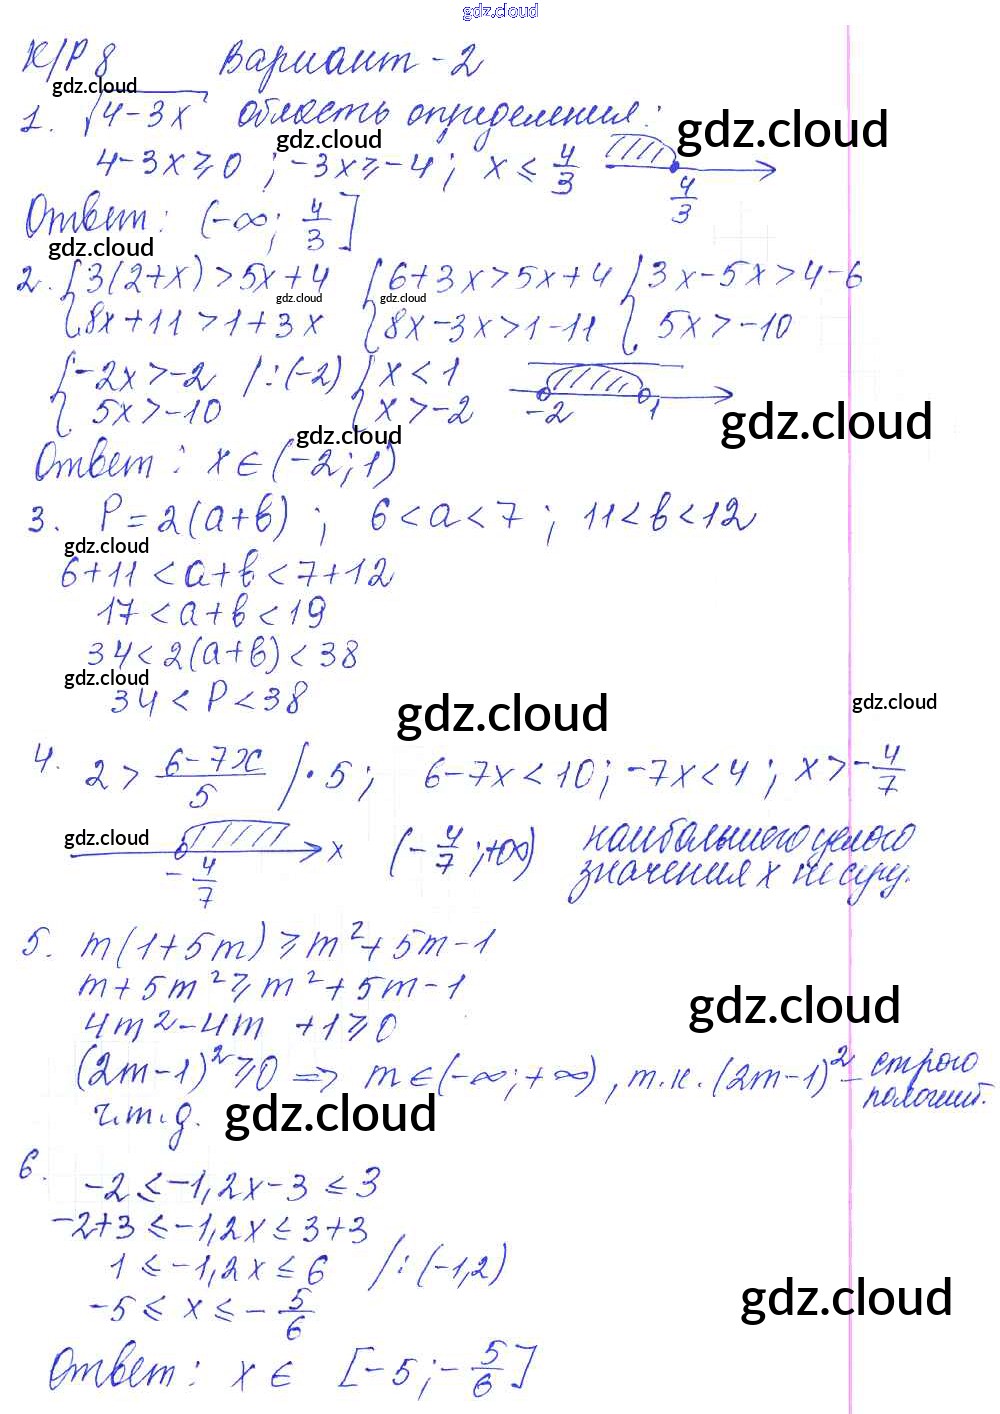 gdz.cloud
К/Р 8 Вариант-2
gdz.cloud
1. √4-3x область определения:
gdz.cloud gdz.cloud
4-3x⩾0 ; -3x⩾-4 ; x ⩽ 4/3
4/3
Ответ: (-∞; 4/3]
gdz.cloud
2. {3(2+x)>5x+4 {6+3x>5x+4 {3x-5x>4-6
gdz.cloud gdz.cloud
8x+11>1+3x 8x-3x>1-11 5x>-10
{-2x>-2 /:(-2) {x<1
5x>-10 x>-2 -2 1
gdz.cloud gdz.cloud
Ответ: x∈(-2;1)
3. P=2(a+b) ; 6<a<7 ; 11<b<12
gdz.cloud
6+11<a+b<7+12
17<a+b<19
34<2(a+b)<38
gdz.cloud
34<P<38
gdz.cloud gdz.cloud
4. 2> 6-7x/5 /·5 ; 6-7x<10; -7x<4 ; x>-4/7
gdz.cloud
-4/7 x (-4/7;+∞) наибольшего целого
значения x не сущ.
5. m(1+5m)⩾m²+5m-1
m+5m²⩾m²+5m-1
gdz.cloud
4m²-4m +1⩾0
(2m-1)²⩾0 => m∈(-∞;+∞), т.к. (2m-1)² - строго
положит.
ч.т.д.
gdz.cloud
6. -2⩽-1,2x-3⩽3
-2+3⩽-1,2x⩽3+3
1⩽-1,2x⩽6 /:(-1,2)
gdz.cloud
-5⩽x⩽-5/6
Ответ: x∈ [-5;-5/6]